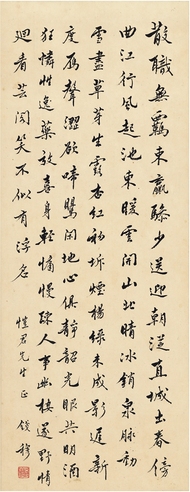 散職無羈束羸驂少送迎朝從直城出春傍
曲江行風起池東暖雲開山北晴冰銷泉脉動
雪盡草芽生露杏紅初坼煙楊綠未成影遲新
度雁聲澀欲啼鶯閑地心俱靜韶光眼共明酒
狂憐性逸藥效喜身輕慵慢疎人事幽棲逐野情
迴看芸閣笑不似有浮名
愷君先生正 錢穆